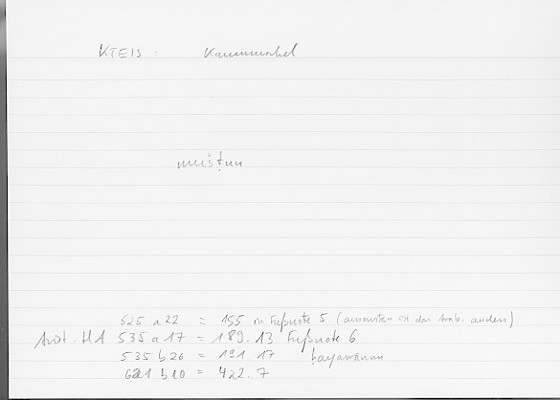 KTEIS : Kammuschel
mušṭun
525 a 22 = 155 m Fußnote 5 (ansonsten ist das Arab. anders)
Arist. HA 535 a 17 = 189.13 Fußnote 6
535 b 26 = 191 17 ḥayawānun
621 b 10 = 422.7